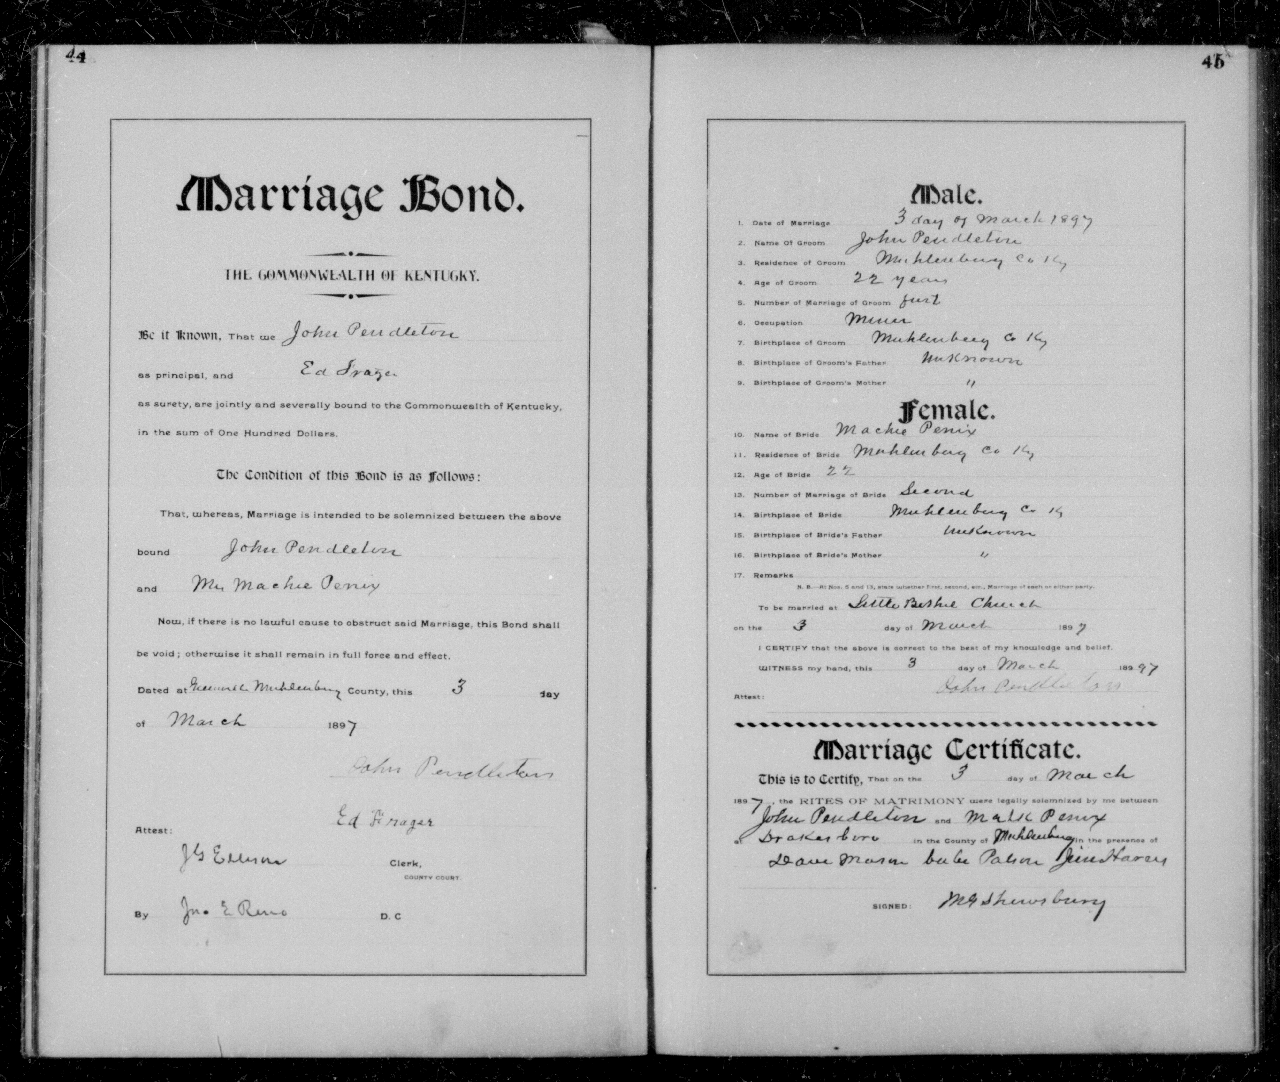 44
Marriage Bond.
THE COMMONWEALTH OF KENTUCKY.
Be it Known, That we John Pendleton
as principal, and Ed Frazer
as surety, are jointly and severally bound to the Commonwealth of Kentucky,
in the sum of One Hundred Dollars.
The Condition of this Bond is as Follows:
That, whereas, Marriage is intended to be solemnized between the above
bound John Pendleton
and Mrs Machie Penix
Now, if there is no lawful cause to obstruct said Marriage, this Bond shall
be void; otherwise it shall remain in full force and effect.
Dated at Greenville Muhlenburg County, this 3 day
of March 1897
John Pendleton
Ed Frazer
Attest:
J G Ellison Clerk,
COUNTY COURT.
By Jno E Reno D. C
45
Male.
1. Date of Marriage 3 day of March 1897
2. Name Of Groom John Pendleton
3. Residence of Groom Muhlenburg Co Ky
4. Age of Groom 22 years
5. Number of Marriage of Groom first
6. Occupation Miner
7. Birthplace of Groom Muhlenburg Co Ky
8. Birthplace of Groom's Father Unknown
9. Birthplace of Groom's Mother "
Female.
10. Name of Bride Machie Penix
11. Residence of Bride Muhlenburg Co Ky
12. Age of Bride 22
13. Number of Marriage of Bride Second
14. Birthplace of Bride Muhlenburg Co K
15. Birthplace of Bride's Father Unknown
16. Birthplace of Bride's Mother "
17. Remarks
N. B.—At Nos. 5 and 13, state whether first, second, etc., Marriage of each or either party.
To be married at Little Bethel Church
on the 3 day of March 1897
I CERTIFY that the above is correct to the best of my knowledge and belief.
WITNESS my hand, this 3 day of March 18997
John Pendleton
Attest:
Marriage Certificate.
This is to Certify, That on the 3 day of March
1897, the RITES OF MATRIMONY were legally solemnized by me between
John Pendleton and Penix
at Drakesboro in the County of Muhlenburg in the presence of
Dave Mason Jim
SIGNED: Shewsbury